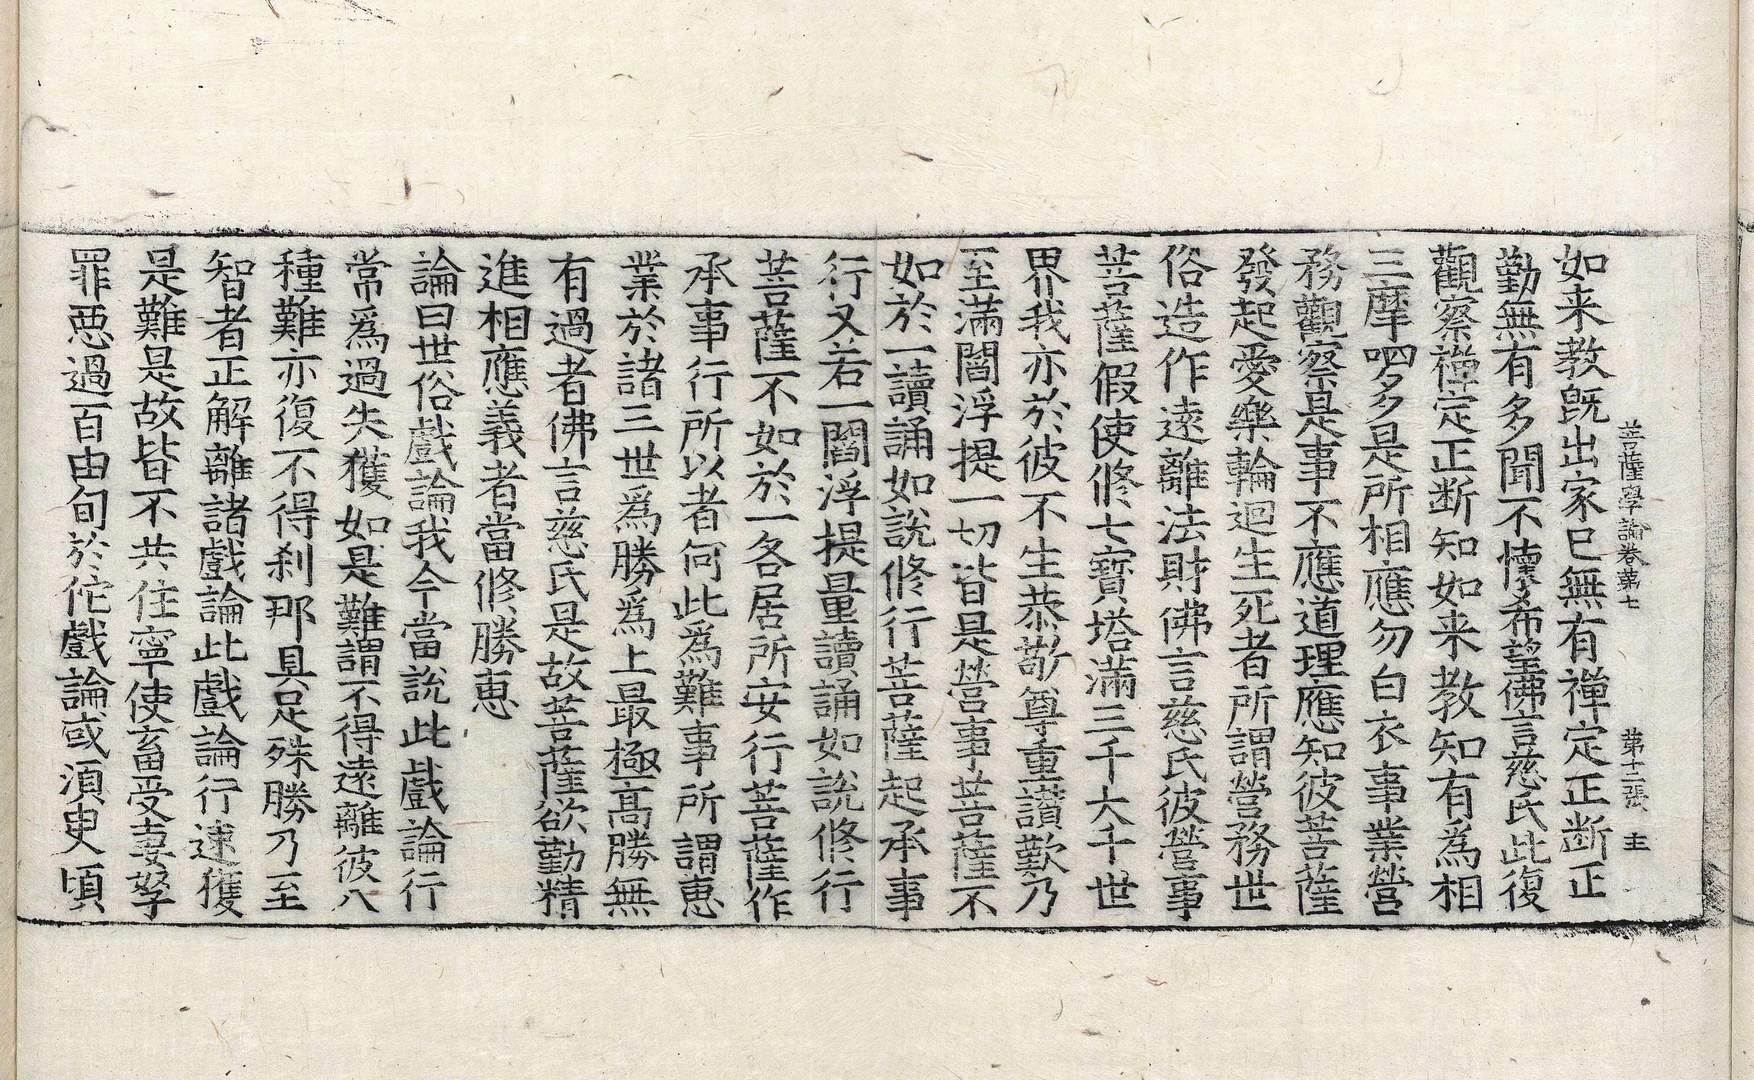 菩薩學論卷第七 第十二張 主
如来教既出家已無有禪定正断正
勤無有多聞不懷希望佛言慈氏此復
觀察禪定正断知如来教知有為相
三摩呬多是所相應勿白衣事業營
務觀察是事不應道理應知彼菩薩
發起愛樂輪迴生死者所謂營務世
俗造作遠離法財佛言慈氏彼營事
菩薩假使修七寶塔滿三千大千世
界我亦於彼不生恭敬尊重讃歎乃
至滿閻浮提一切皆是營事菩薩不
如於一讀誦如說修行菩薩起承事
行又若一閻浮提量讀誦如說修行
菩薩不如於一各居所安行菩薩作
承事行所以者何此為難事所謂恵
業於諸三世爲勝爲上最極高勝無
有過者佛言慈氏是故菩薩欲勤精
進相應義者當修勝恵
論曰世俗戲論我今當說此戲論行
常爲過失獲如是難謂不得遠離彼八
種難亦復不得刹那具足殊勝乃至
智者正解離諸戲論此戲論行速獲
是難是故皆不共住寧使畜受妻孥
罪惡過百由旬於佗戲論或須臾頃